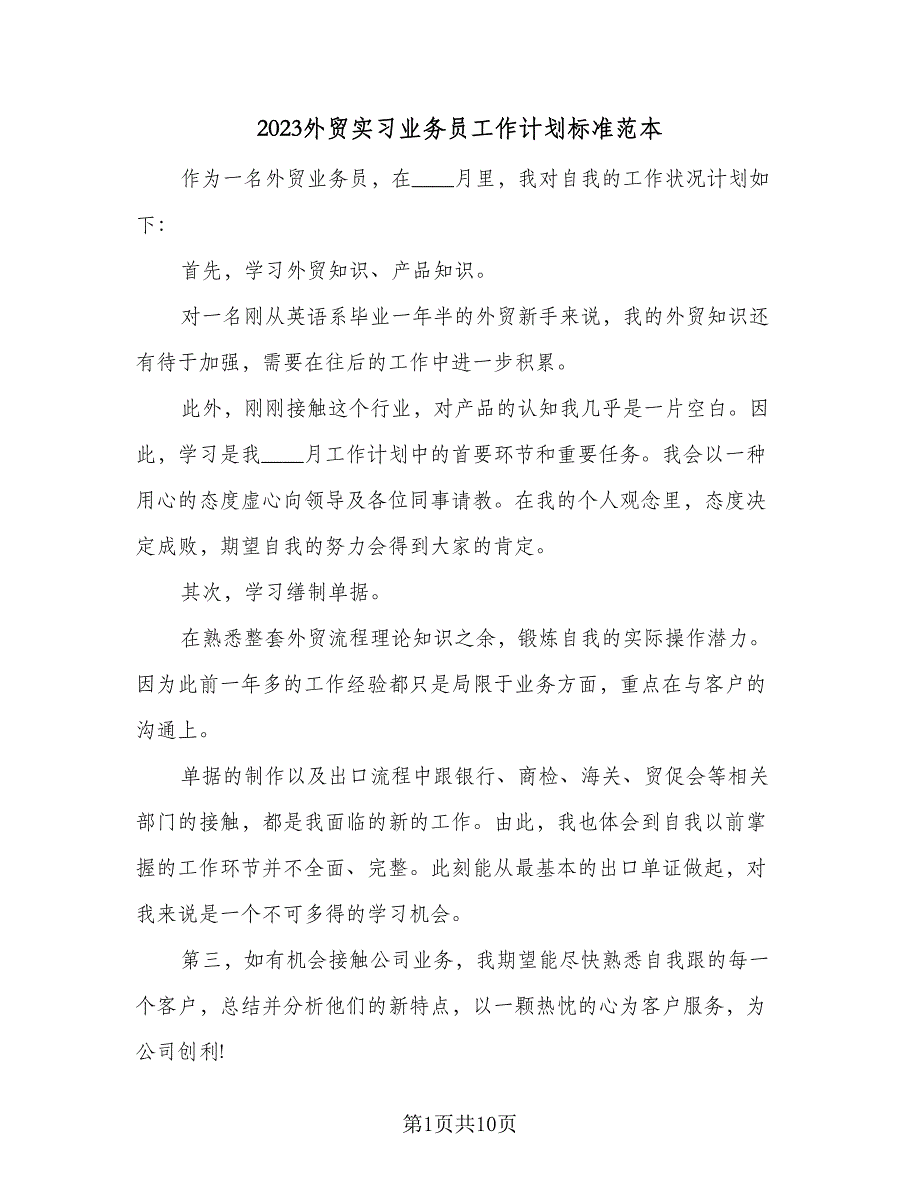 2023外贸实习业务员工作计划标准范本
作为一名外贸业务员，在____月里，我对自我的工作状况计划如
下：
首先，学习外贸知识、产品知识。
对一名刚从英语系毕业一年半的外贸新手来说，我的外贸知识还
有待于加强，需要在往后的工作中进一步积累。
此外，刚刚接触这个行业，对产品的认知我几乎是一片空白。因
此，学习是我____月工作计划中的首要环节和重要任务。我会以一种
用心的态度虚心向领导及各位同事请教。在我的个人观念里，态度决
定成败，期望自我的努力会得到大家的肯定。
其次，学习缮制单据。
在熟悉整套外贸流程理论知识之余，锻炼自我的实际操作潜力。
因为此前一年多的工作经验都只是局限于业务方面，重点在与客户的
沟通上。
单据的制作以及出口流程中跟银行、商检、海关、贸促会等相关
部门的接触，都是我面临的新的工作。由此，我也体会到自我以前掌
握的工作环节并不全面、完整。此刻能从最基本的出口单证做起，对
我来说是一个不可多得的学习机会。
第三，如有机会接触公司业务，我期望能尽快熟悉自我跟的每一
个客户，总结并分析他们的新特点，以一颗热忱的心为客户服务，为
公司创利!
第1页共10页